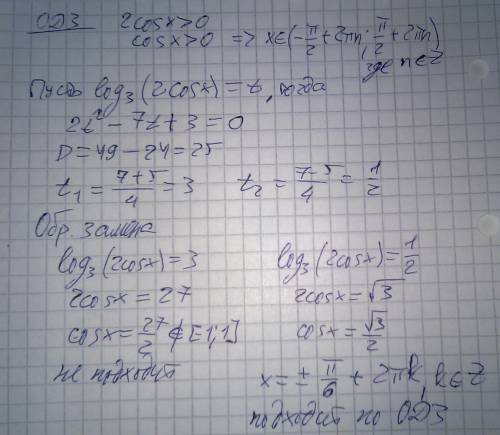 ОДЗ 2cosx>0
cosx>0 => x∈(-π/2+2πn; π/2+2πn)
где n∈Z
Пусть log₃(2cosx)=t, тогда
2t²-7t+3=0
D=49-24=25
t₁=(7+5)/4=3 t₂=(7-5)/4=1/2
Обр. замена
log₃(2cosx)=3 log₃(2cosx)=1/2
2cosx=27 2cosx=√3
cosx=27/2∉[-1;1] cosx=√3/2
не подходит x=±π/6+2πk, k∈Z
подходит по ОДЗ